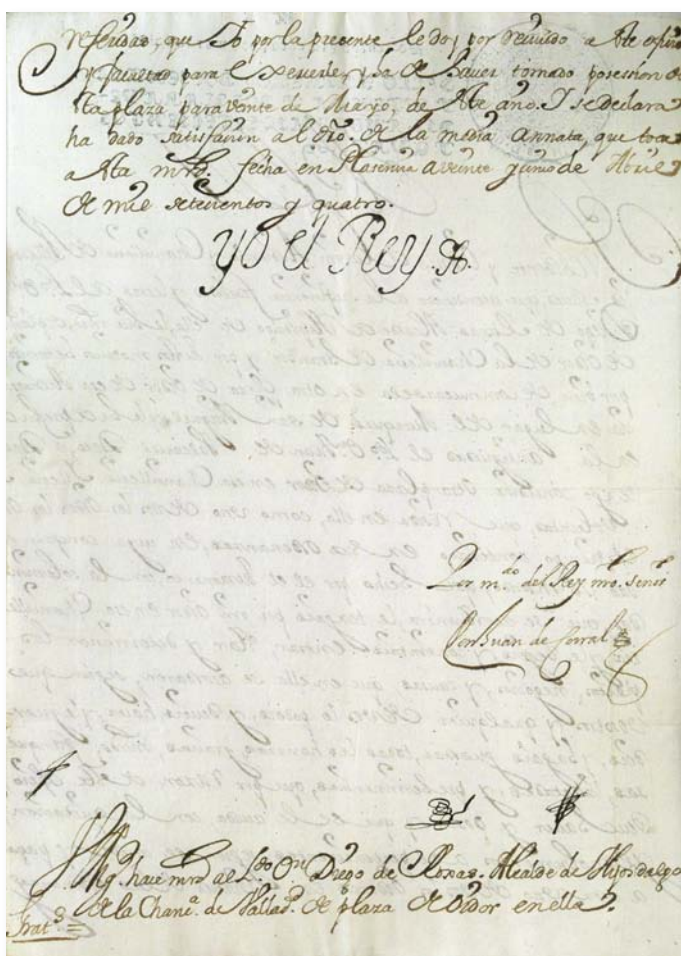 referidas, que Yo por la presente le doy por recivido a este exſsiº
y facultad para exercerle, y ha de haver tomado posession de
esta plaza para veinte de Mayo, de este año. Y se declara
ha dado satisfacin al dro. de la media annata, que toca
a esta mrd. fecha en Plasencia a veinte y uno de Abril
de mill setecientos y quatro.
Yo el Rey
Por mdo del Rey nro. señor
Don Juan de Corral
Mgd. hace mrd al Ldo Dn Diego de Roxas. Alcalde de Hijosdalgo
de la Chanª. de Valladd. de plaza de Oidor en ella.
Gratª